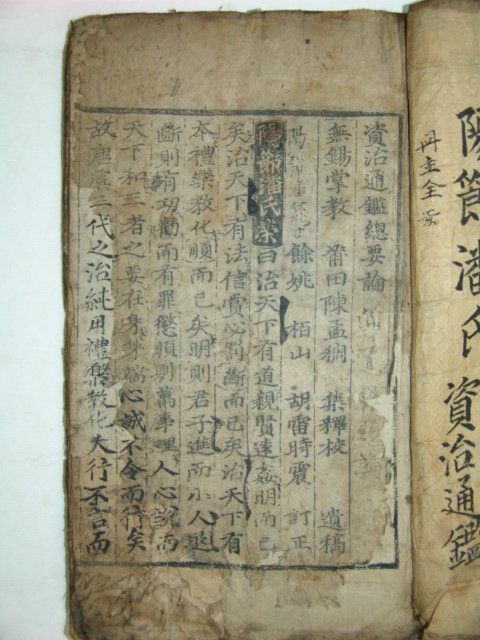 陽節潘氏資治通鑑
冊主全
資治通鑑總要論
無錫掌教 莆田陳孟稠 集釋校 遺稿
餘姚 栢山 胡雷時震 訂正
陽節潘氏榮曰治天下有道親賢遠姦明而已
矣治天下有法信賞必罰斷而已矣治天下有
本禮樂教化順而已矣明則君子進而小人退
斷則有功勸而有罪懲順則萬事理人心說而
天下和三者之要在身身端心誠不令而行矣
故唐虞三代之治純用禮樂教化大行不言而